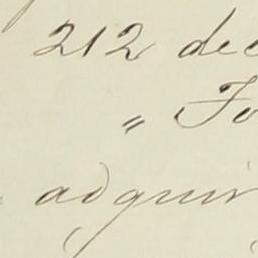 212 dec
" Fo
adquir